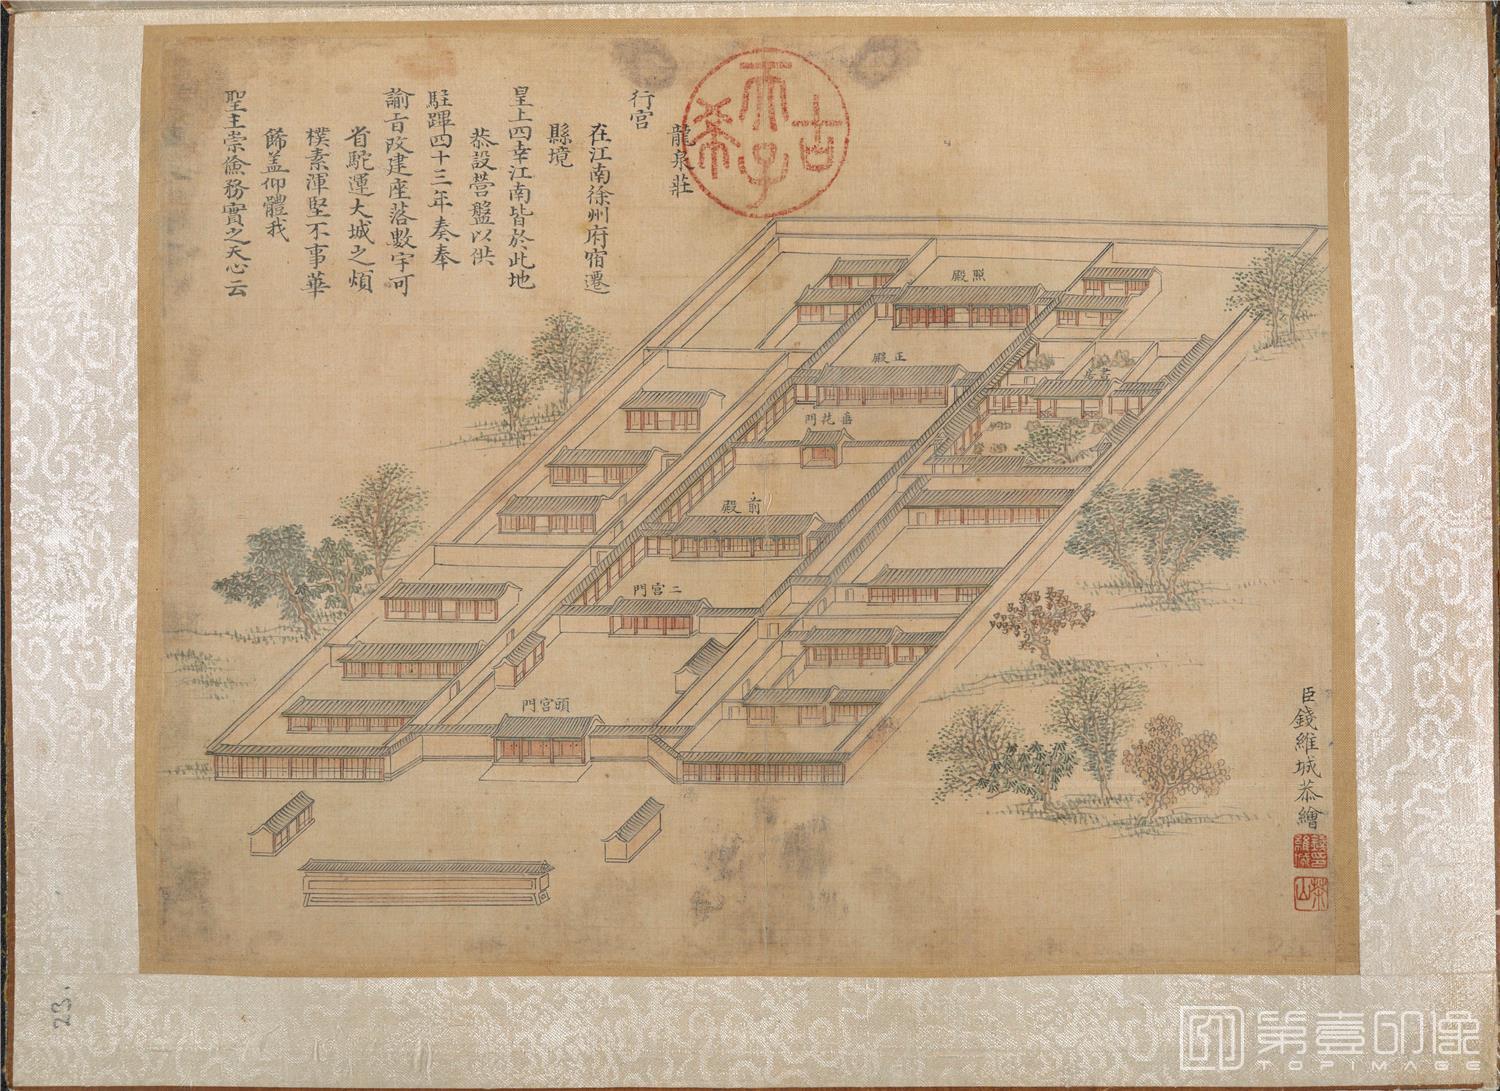 古希天子
龍泉莊
行宮
在江南徐州府宿遷
縣境
皇上四幸江南皆於此地
恭設營盤以供
駐蹕四十三年奏奉
諭旨改建座落數宇可
省駝運大城之煩
樸素渾堅不事華
飾盖仰體我
聖主崇儉務實之天心云
照殿
正殿
書房
垂花門
前殿
二宮門
頭宮門
臣錢維城恭繪
錢印維城
茶山
23.
第壹印像
TOPIMAGE